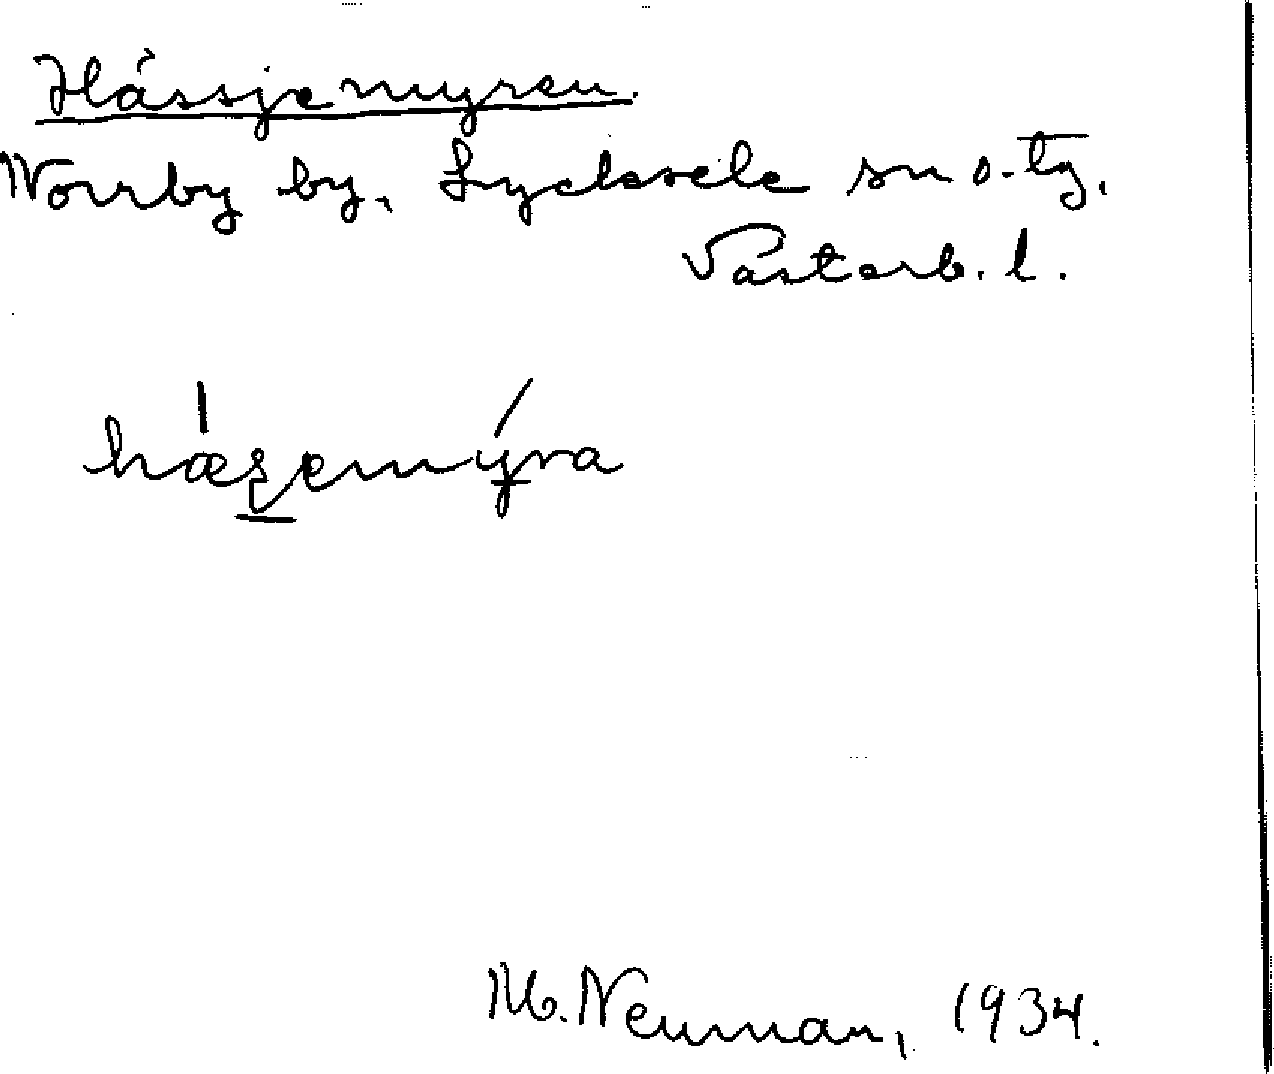 Hässjemyren.
Norrby by, Lycksele sn o. tg,
Västerb. l.
hæʂemyra
M. Neuman, 1934.